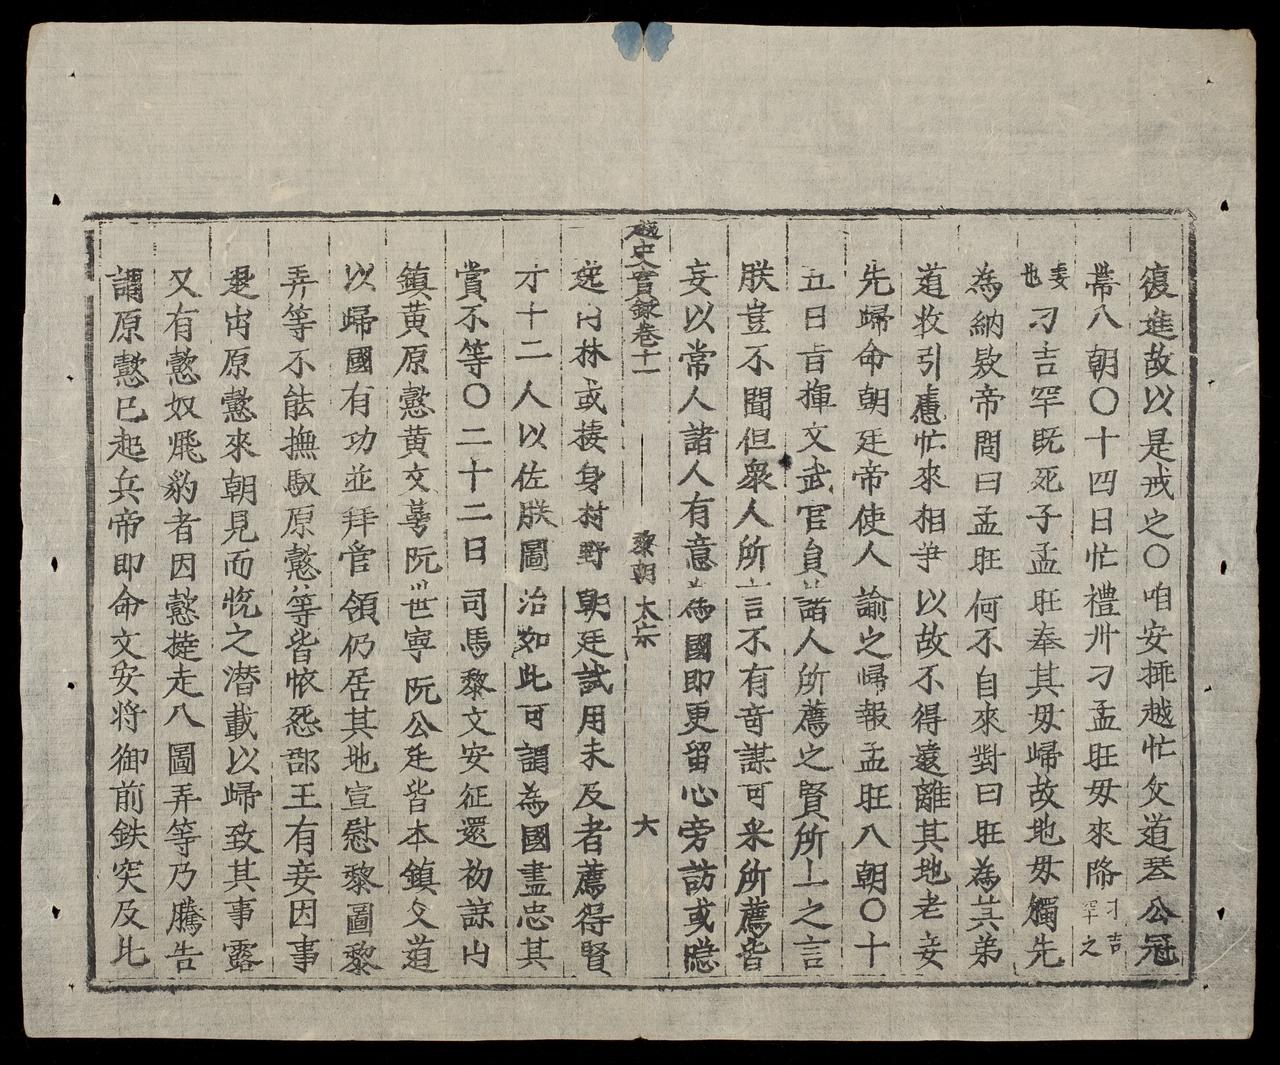 復進故以是戒之〇咱安排越忙父道琴公冠
帶入朝〇十四日忙禮卅刁孟旺毋來降刁吉罕之
妻也刁吉罕既死子孟旺奉其毋歸故地毋觸先
為納欵帝問曰孟旺何不自來對曰旺為其弟
道牧引慿忙來相爭以故不得遠離其地老妾
先歸命朝廷帝使人諭之歸報孟旺入朝〇十
五日旨揮文武官員諸人所薦之賢所上之言
朕豈不聞但衆人所言不有竒謀可采所薦皆
妄以常人諸人有意為國即更留心旁訪或隠
越史實錄卷十一 黎朝 太宗 六
迹山林或棲身村野朝廷試用未及者薦得賢
才十二人以佐朕圖治如此可謂為國盡忠其
賞不等〇二十二日司馬黎文安征還初諒山
鎮黄原懿黄文 阮世寧阮公廷皆本鎮父道
以歸國有功並拜管領仍居其地宣慰黎圖黎
弄等不能撫馭原懿等皆恢怨郡王有妾因事
逃出原懿來朝見而悅之潜載以歸致其事露
又有懿奴飛豹者因懿撻走入圖弄等乃騰告
謂原懿已起兵帝即命文安将御前鉄突及北